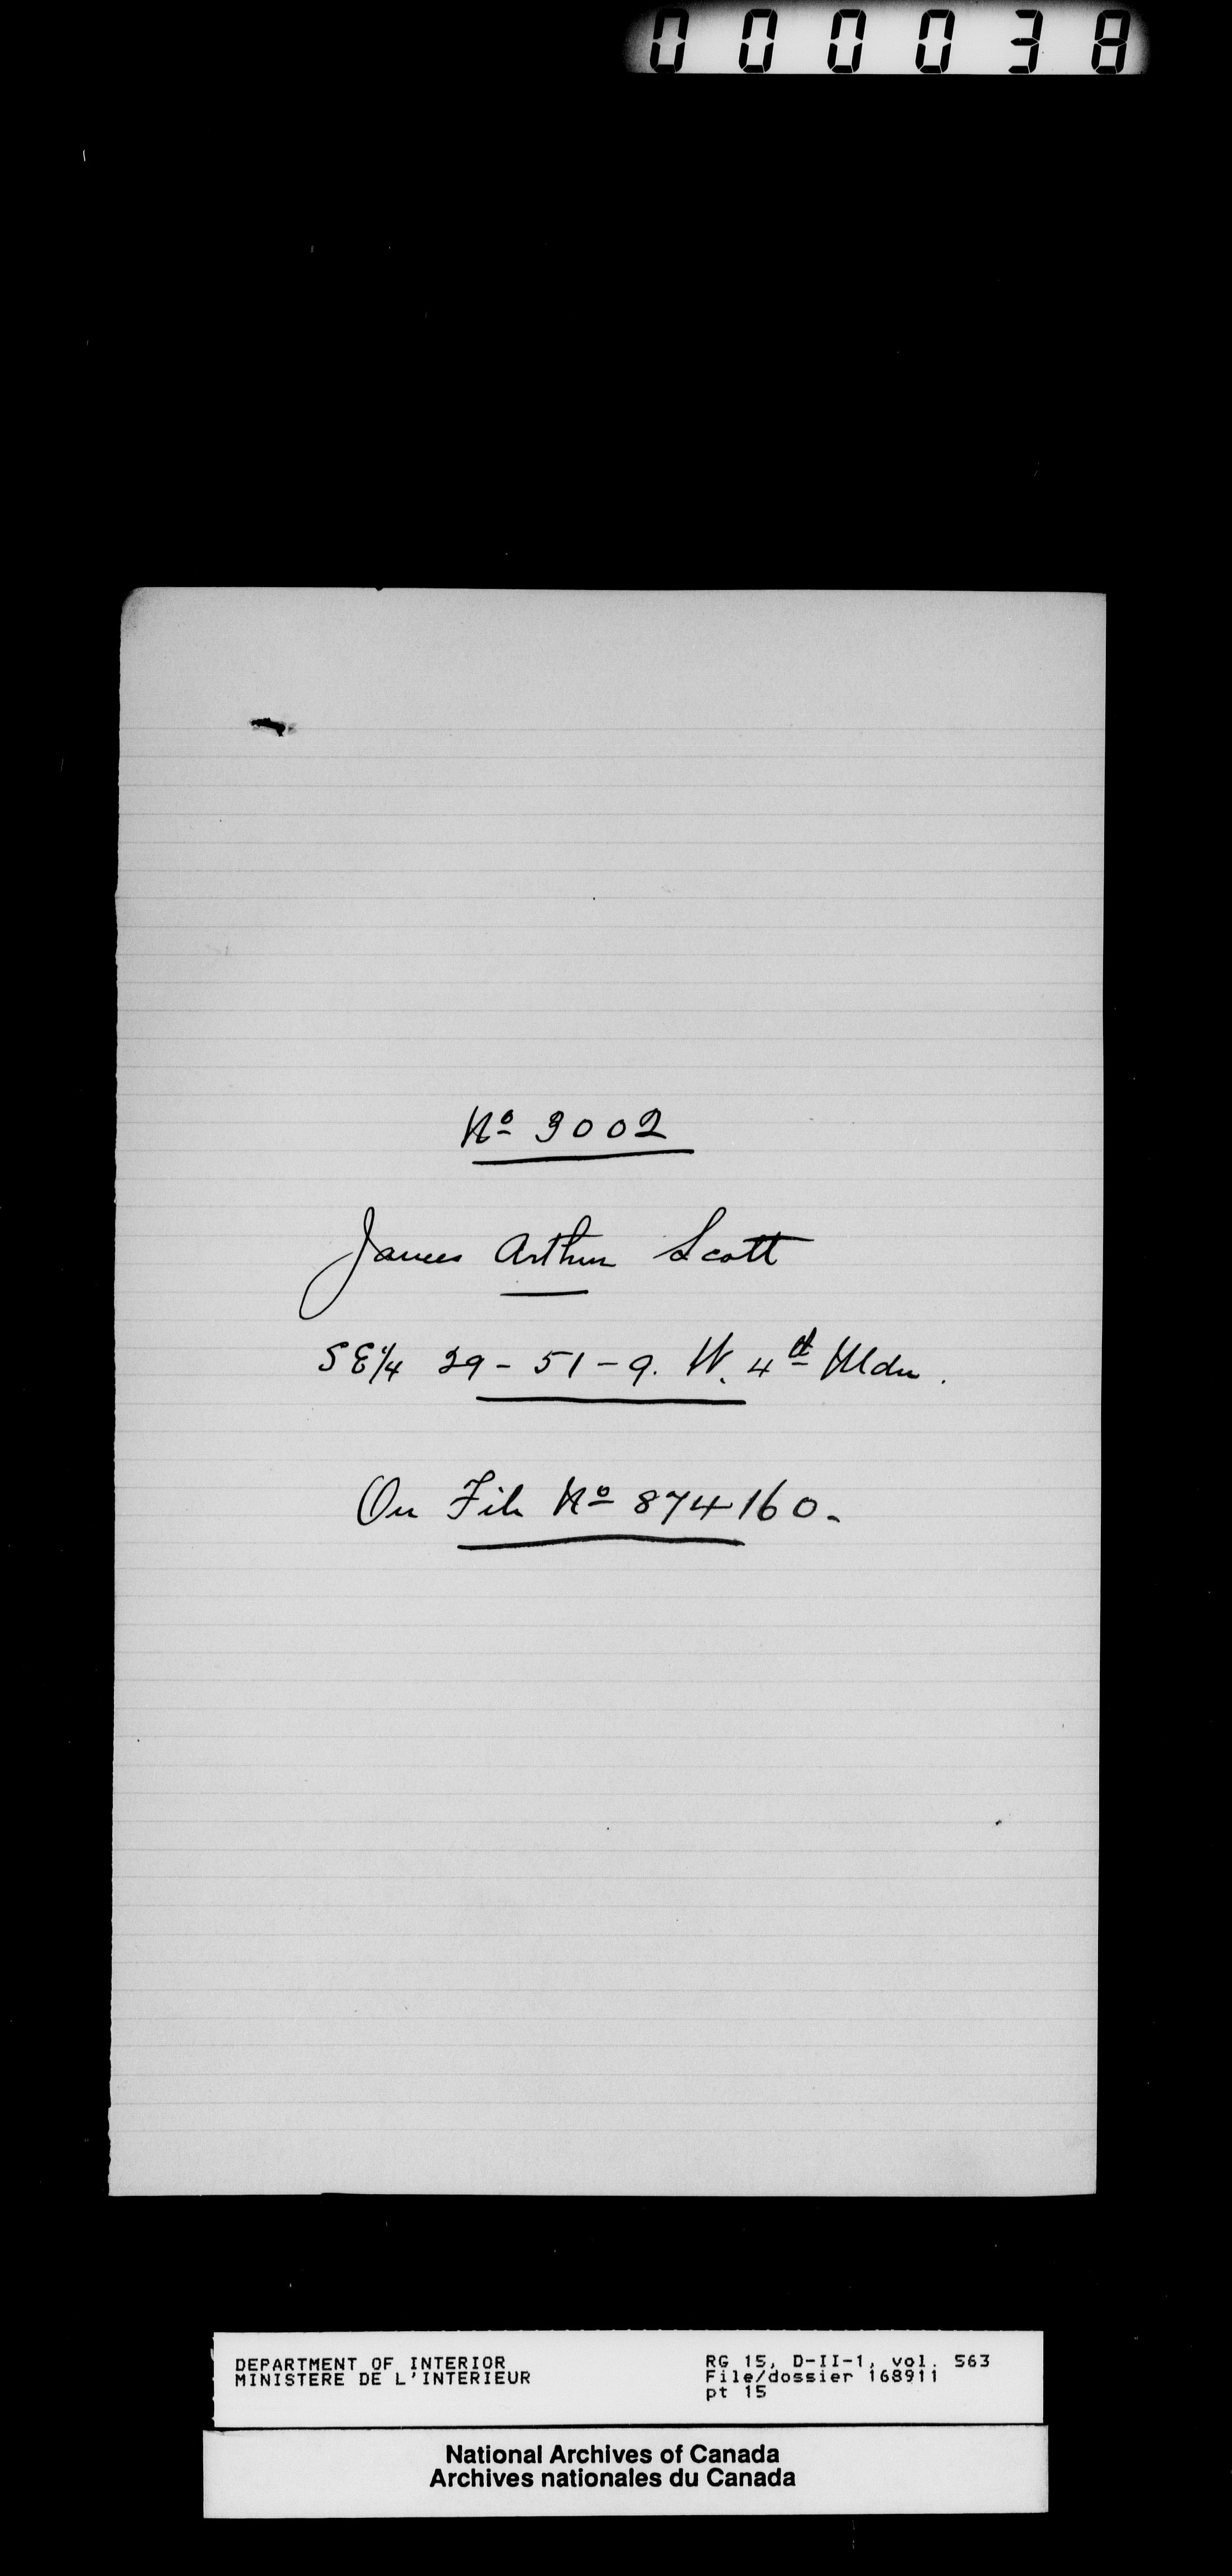 000038
Nº 3002
James Arthur Scott
SE¼ 29 - 51 - 9. W. 4th Mdn.
On File Nº 874160.
DEPARTMENT OF INTERIOR
MINISTERE DE L'INTERIEUR
RG 15, D-II-1, vol. 563
File/dossier 168911
pt 15
National Archives of Canada
Archives nationales du Canada